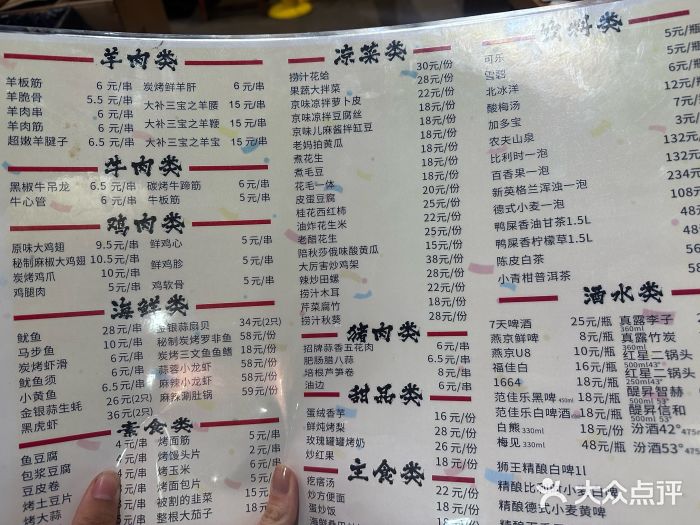 羊肉类
羊板筋 6 元/串 炭烤鲜羊肝 6 元/串
羊脆骨 5.5 元/串 大补三宝之羊腰 15 元/串
羊肉串 6 元/串
羊肉筋 6 元/串 大补三宝之羊鞭 15 元/串
超嫩羊腱子 6.5 元/串 大补三宝之羊宝 15 元/串
牛肉类
黑椒牛吊龙 6.5 元/串 碳烤牛蹄筋 6 元/串
牛心管 6 元/串 牛板筋 5 元/串
鸡肉类
原味大鸡翅 9.5元/串 鲜鸡心 5 元/串
秘制麻椒大鸡翅 10.5元/串
炭烤鸡爪 10元/串 鲜鸡胗 5 元/串
鸡腿肉 5元/串 鸡软骨 5 元/串
海鲜类
鱿鱼 28元/串 金银蒜扇贝 34元(2只)
马步鱼 10元/串 秘制炭烤罗非鱼 58元/份
炭烤虾滑 6元/串 炭烤三文鱼鱼鳍 18元/份
鱿鱼须 6.5元/串 蒜蓉小龙虾 58元/份
小黄鱼 6元/串 麻辣小龙虾 58元/份
金银蒜生蚝 26元(2只) 麻辣涮肚锅 59元/份
黑虎虾 36元(2只)
素食类
鱼豆腐 4元/串 烤面筋 5元/串
包浆豆腐 烤馒头片 2元/串
豆皮卷 烤玉米 6元/串
烤土豆片 烤面包片 5元/串
烤大蒜 被割的韭菜
整根大茄子
凉菜类
捞汁花蛤 30元/份
果蔬大拌菜 28元/份
京味凉拌萝卜皮 22元/份
京味凉拌豆腐丝 18元/份
京味儿麻酱拌豇豆 18元/份
老妈拍黄瓜 18元/份
煮花生 18元/份
煮毛豆 18元/份
花毛一体 20元/份
皮蛋豆腐 25元/份
桂花西红柿 22元/份
油炸花生米 25元/份
老醋花生 15元/份
赔秋莎俄味酸黄瓜 38元/份
大厉害炒鸡架 28元/份
辣炒田螺 22元/份
捞汁木耳 28元/份
芹菜腐竹 18元/份
捞汁秋葵
猪肉类
招牌蒜香五花肉 6元/串
肥肠腊八蒜 6.5元/串
培根芦笋卷 8元/串
油边 6元/串
甜品类
蛋绒香芋 16元/份
鲜炖烤梨 28元/份
玫瑰罐罐烤奶 26元/份
炒红果 18元/份
主食类
疙瘩汤 22元/份
炒方便面
蛋炒饭
饮料类
可乐 5元/瓶
雪碧 5元/瓶
北冰洋 6元/
酸梅汤 12元/
加多宝 7元/
农夫山泉 3元/
比利时一泡 132元
百香果一泡 132元
新英格兰浑浊一泡 234元
德式小麦一泡 108元
鸭屎香油甘茶1.5L
鸭屎香柠檬草1.5L
陈皮白茶
小青柑普洱茶
酒水类
7天啤酒 25元/瓶 真露李子 360ml
燕京鲜啤 8元/瓶 真露竹炭 360ml
燕京U8 10元/瓶 红星二锅头 500ml43°
福佳白 16元/瓶 红星二锅头 250ml43°
1664 18元/瓶 醍星智赫 500ml 53°
范佳乐黑啤 450ml 18元/瓶 醍星信和 500ml 53°
范佳乐白啤酒 18元/瓶
白熊330ml 汾酒42°475m
梅见330ml 48元/瓶 汾酒53°475
狮王精酿白啤1l
精酿德式小麦黄啤
大众点评